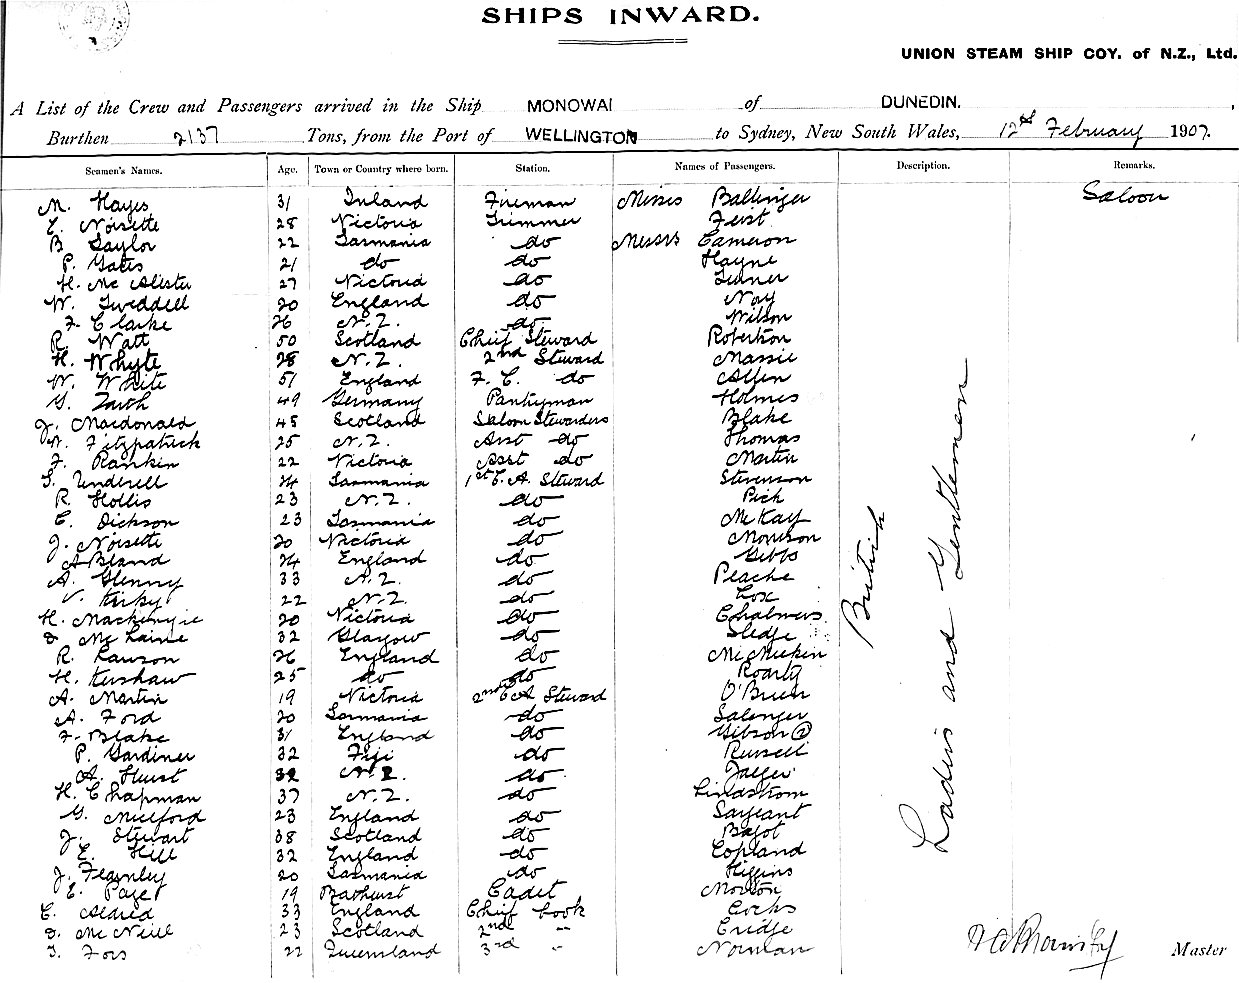 SHIPS INWARD.
UNION STEAM SHIP COY. of N.Z., Ltd.
A List of the Crew and Passengers arrived in the Ship MONOWAI of DUNEDIN.,
Burthen 2137 Tons, from the Port of WELLINGTON to Sydney, New South Wales, 12th February 1907.
Seamen's Names. Age. Town or Country where born. Station. Names of Passengers. Description. Remarks.
M. Hayes 31 Ireland Fireman Misses Ballinger Saloon
E. Noisette 28 Victoria Trimmer Feist
B Saylor 22 Tasmania do Messrs Cameron
P. Yates 21 do do Hayne
H. Mc Alister 27 Victoria do Turner
W. Tweddell 20 England do Nay
F. Clarke 26 N.Z. do Wilson
R. Watt 50 Scotland Chief Steward Robertson
H. Whyte 28 N.Z. 2nd Steward Massie
W. White 51 England F. C. do Allen
49 Germany Pantryman Holmes
J. Macdonald 48 Scotland Saloon Stewardess Blake
W. Fitzpatrick 25 N.Z. Asst do Thomas
F. Rankin 22 Victoria Asst do Martin
S. Underell 24 Tasmania 1st C. A. Steward Stevenson
R. Hollis 23 N.Z. do Pick
C. Dickson 23 Tasmania do McKay
J. Noisette 20 Victoria do Morrison
A Bland 24 England do Gibbs
A. Glenny 33 N.Z. do Peache
V. Kirky 22 N.Z. do Cox
H. Mackenzie 20 Victoria do Chalmers
D. Mc Laine 32 Glasgow do Sledge
R. Lawson 26 England do Mc Meekin
H. Kershaw 25 do do Roarty
A. Martin 19 Victoria 2nd C A Steward O'Brien
A. Ford 20 Tasmania do Salenger
F. Blake 31 England do Gibson (2)
P. Gardiner 32 Fiji do Russell
A. Hurst 32 N.Z. do Jaeger
H. Chapman 37 N.Z. do Lindstrom
G. Mulford 23 England do Sargeant
J. Stewart 38 Scotland do Bajot
E. Hill 32 England do Copland
J. Fearnley 20 Tasmania do Higgins
E. Paget 19 Bathurst Cadet Morton
C. 33 England Chief Cook Cocks
D. Mc Neill 23 Scotland 2nd " Eridge
T. Fors 22 Queensland 3rd " Norman
British
Ladies and Gentlemen
Master